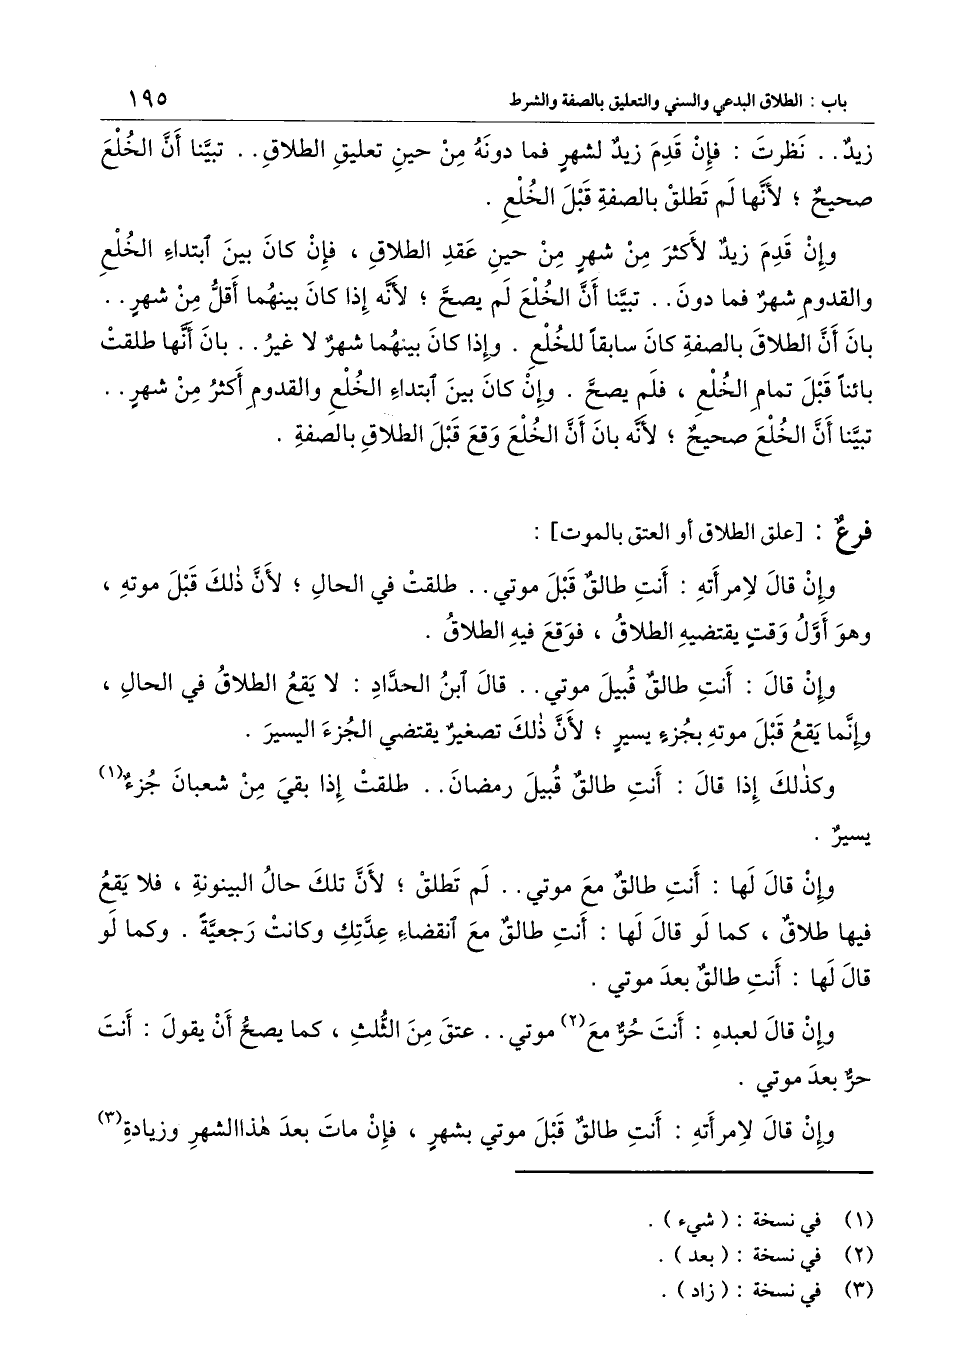 باب : الطلاق البدعي والسني والتعليق بالصفة والشرط ١٩٥
زيدٌ . . نَظرتَ : فإِنْ قَدِمَ زيدٌ لشهرٍ فما دونَهُ مِنْ حينِ تعليقِ الطلاقِ . . تبيَّنا أَنَّ الخُلْعَ
صحيحٌ ؛ لأَنَّها لَم تَطلقْ بالصفةِ قَبْلَ الخُلْعِ .
وإِنْ قَدِمَ زيدٌ لأَكثرَ مِنْ شهرٍ مِنْ حينِ عَقدِ الطلاقِ ، فإِنْ كانَ بينَ ٱبتداءِ الخُلْعِ
والقدومِ شهرٌ فما دونَ . . تبيَّنا أَنَّ الخُلْعَ لَم يصحَّ ؛ لأَنَّه إِذا كانَ بينهُما أَقلُّ مِنْ شهرٍ . .
بانَ أَنَّ الطلاقَ بالصفةِ كانَ سابقاً للخُلْعِ . وإِذا كانَ بينهُما شهرٌ لا غيرُ . . بانَ أَنَّها طلقتْ
بائناً قَبْلَ تمامِ الخُلْعِ ، فلَم يصحَّ . وإِنْ كانَ بينَ ٱبتداءِ الخُلْعِ والقدومِ أَكثرُ مِنْ شهرٍ . .
تبيَّنا أَنَّ الخُلْعَ صحيحٌ ؛ لأَنَّه بانَ أَنَّ الخُلْعَ وَقعَ قَبْلَ الطلاقِ بالصفةِ .
فرعٌ : [علق الطلاق أو العتق بالموت] :
وإِنْ قالَ لاِمرأَتهِ : أَنتِ طالقٌ قَبْلَ موتي . . طلقتْ في الحالِ ؛ لأَنَّ ذٰلكَ قَبْلَ موتهِ ،
وهوَ أَوَّلُ وَقتٍ يقتضيهِ الطلاقُ ، فوَقعَ فيهِ الطلاقُ .
وإِنْ قالَ : أَنتِ طالقٌ قُبيلَ موتي . . قالَ ٱبنُ الحدَّادِ : لا يَقعُ الطلاقُ في الحالِ ،
وإِنَّما يَقعُ قَبْلَ موتهِ بجُزءٍ يسيرٍ ؛ لأَنَّ ذٰلكَ تصغيرٌ يقتضي الجُزءَ اليسيرَ .
وكذٰلكَ إِذا قالَ : أَنتِ طالقٌ قُبيلَ رمضانَ . . طلقتْ إِذا بقيَ مِنْ شعبانَ جُزءٌ(١)
يسيرٌ .
وإِنْ قالَ لَها : أَنتِ طالقٌ معَ موتي . . لَم تَطلقْ ؛ لأَنَّ تلكَ حالُ البينونةِ ، فلا يَقعُ
فيها طلاقٌ ، كما لَو قالَ لَها : أَنتِ طالقٌ معَ ٱنقضاءِ عِدَّتِكِ وكانتْ رَجعيَّةً . وكما لَو
قالَ لَها : أَنتِ طالقٌ بعدَ موتي .
وإِنْ قالَ لعبدهِ : أَنتَ حُرٌّ معَ(٢) موتي . . عتقَ مِنَ الثُّلثِ ، كما يصحُّ أَنْ يقولَ : أَنتَ
حرٌّ بعدَ موتي .
وإِنْ قالَ لاِمرأَتهِ : أَنتِ طالقٌ قَبْلَ موتي بشهرٍ ، فإِنْ ماتَ بعدَ هٰذا الشهرِ وزيادةِ(٣)
(١) في نسخة : ( شيء ) .
(٢) في نسخة : ( بعد ) .
(٣) في نسخة : ( زاد ) .